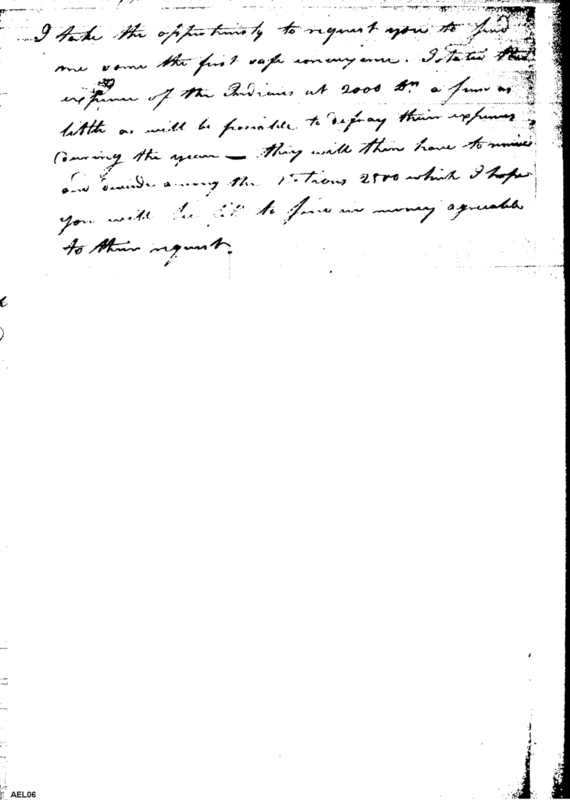 I take the opportunity to request you to send
me some the first safe conveyance. I stated the
expence of the Indians at 2000 Drs a sum as
little as will be possible to defray their expences
during the year — they will then have to receive
and divide among the Nations 2500 which I hope
you will see fit to send in money agreeable
to their request.
AEL06